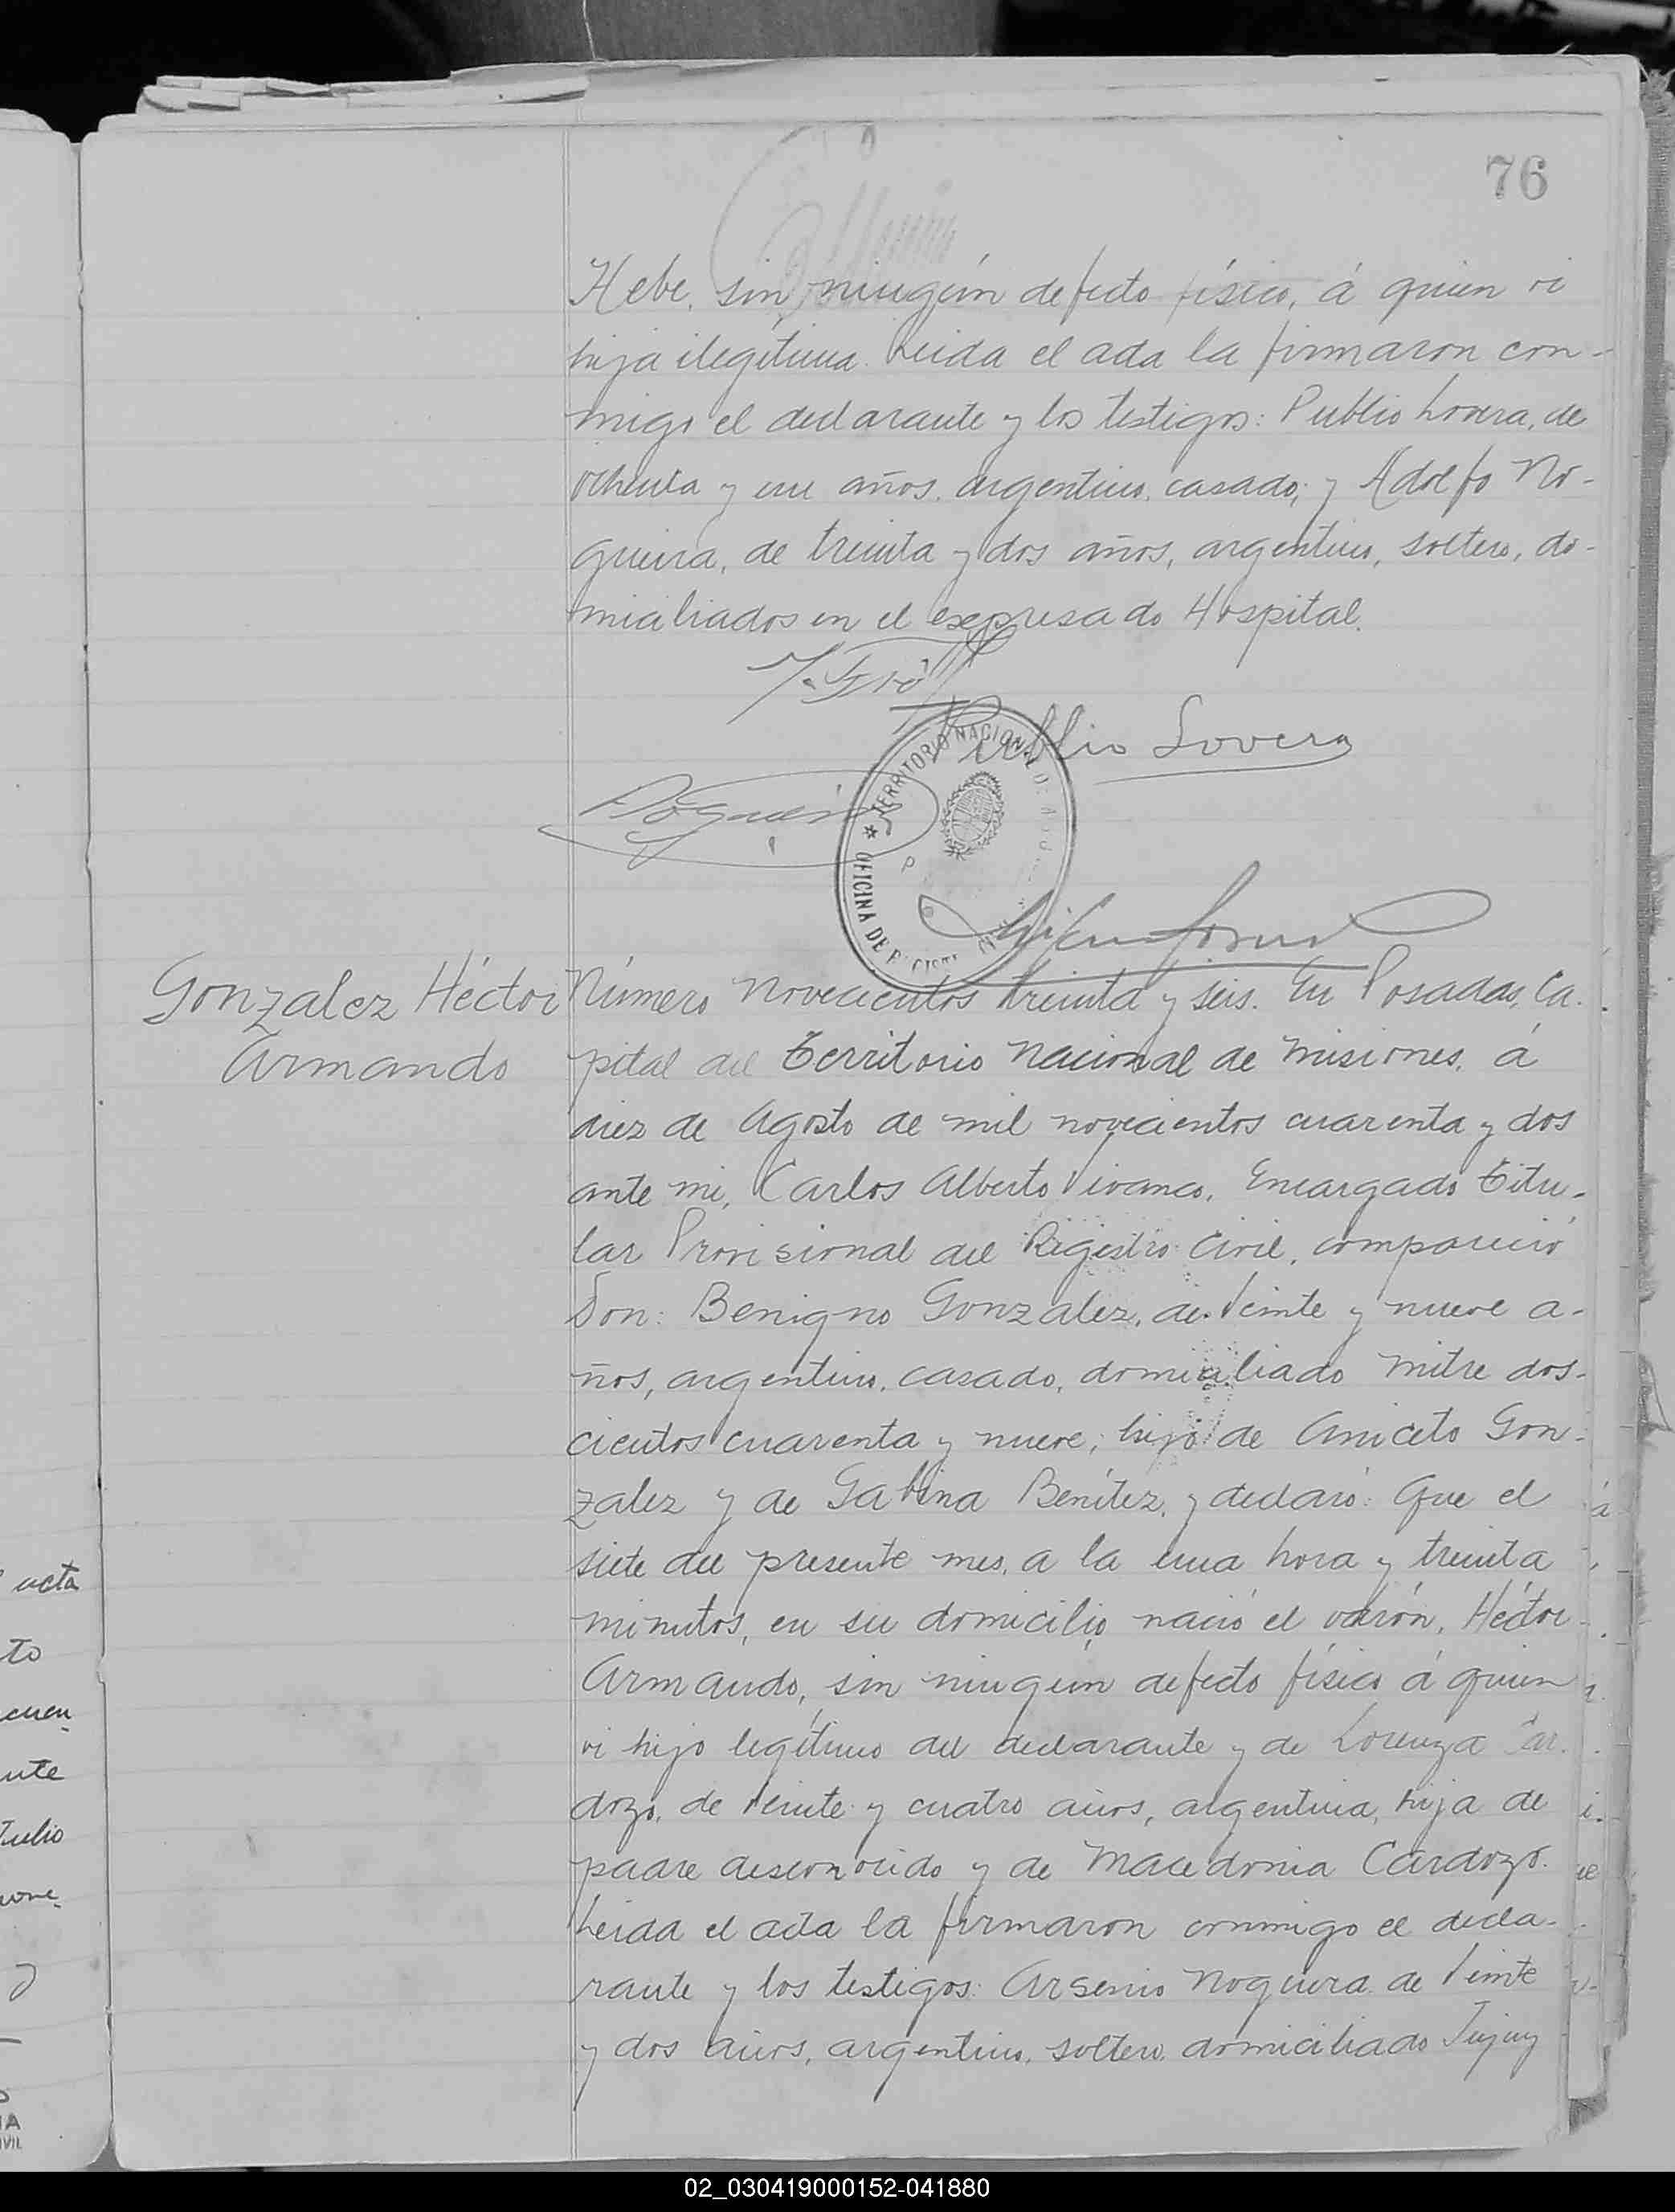 76
Hebe, sin ningún defecto físico, á quien vi
hija ilegítima. Leida el acta la firmaron con-
migo el declarante y los testigos: Publio Lovera, de
ochenta y un años, argentino, casado; y Adolfo No-
gueira, de treinta y dos años, argentino, soltero, do-
miciliados en el expresado Hospital.
Publio Lovera
Nogueira
TERRITORIO NACIONAL
OFICINA DE
Gonzalez Héctor
Armando
Número novecientos treinta y seis. En Posadas, Ca-
pital del Territorio Nacional de Misiones, á
diez de Agosto de mil novecientos cuarenta y dos
ante mi, Carlos Alberto Vivanco, Encargado Titu-
lar Provisional del Registro Civil, compareció
Don: Benigno Gonzalez, de veinte y nueve a-
ños, argentino, casado, domiciliado Mitre dos-
cientos cuarenta y nueve; hijo de Aniceto Gon-
zalez y de Gabina Benítez, y declaró: Que el
siete del presente mes, a la una hora y treinta
minutos, en su domicilio nació el varón, Héctor
Armando, sin ningún defecto físico á quien
vi hijo legítimo del declarante y de Lorenza Car-
dozo, de veinte y cuatro años, argentina, hija de
padre desconocido y de Macedonia Cardozo.
Leida el acta la firmaron conmigo el decla-
rante y los testigos: Arsenio Noguera de veinte
y dos años, argentino, soltero, domiciliado Jujuy
acta
to
cuen
nte
Julio
02_030419000152-041880